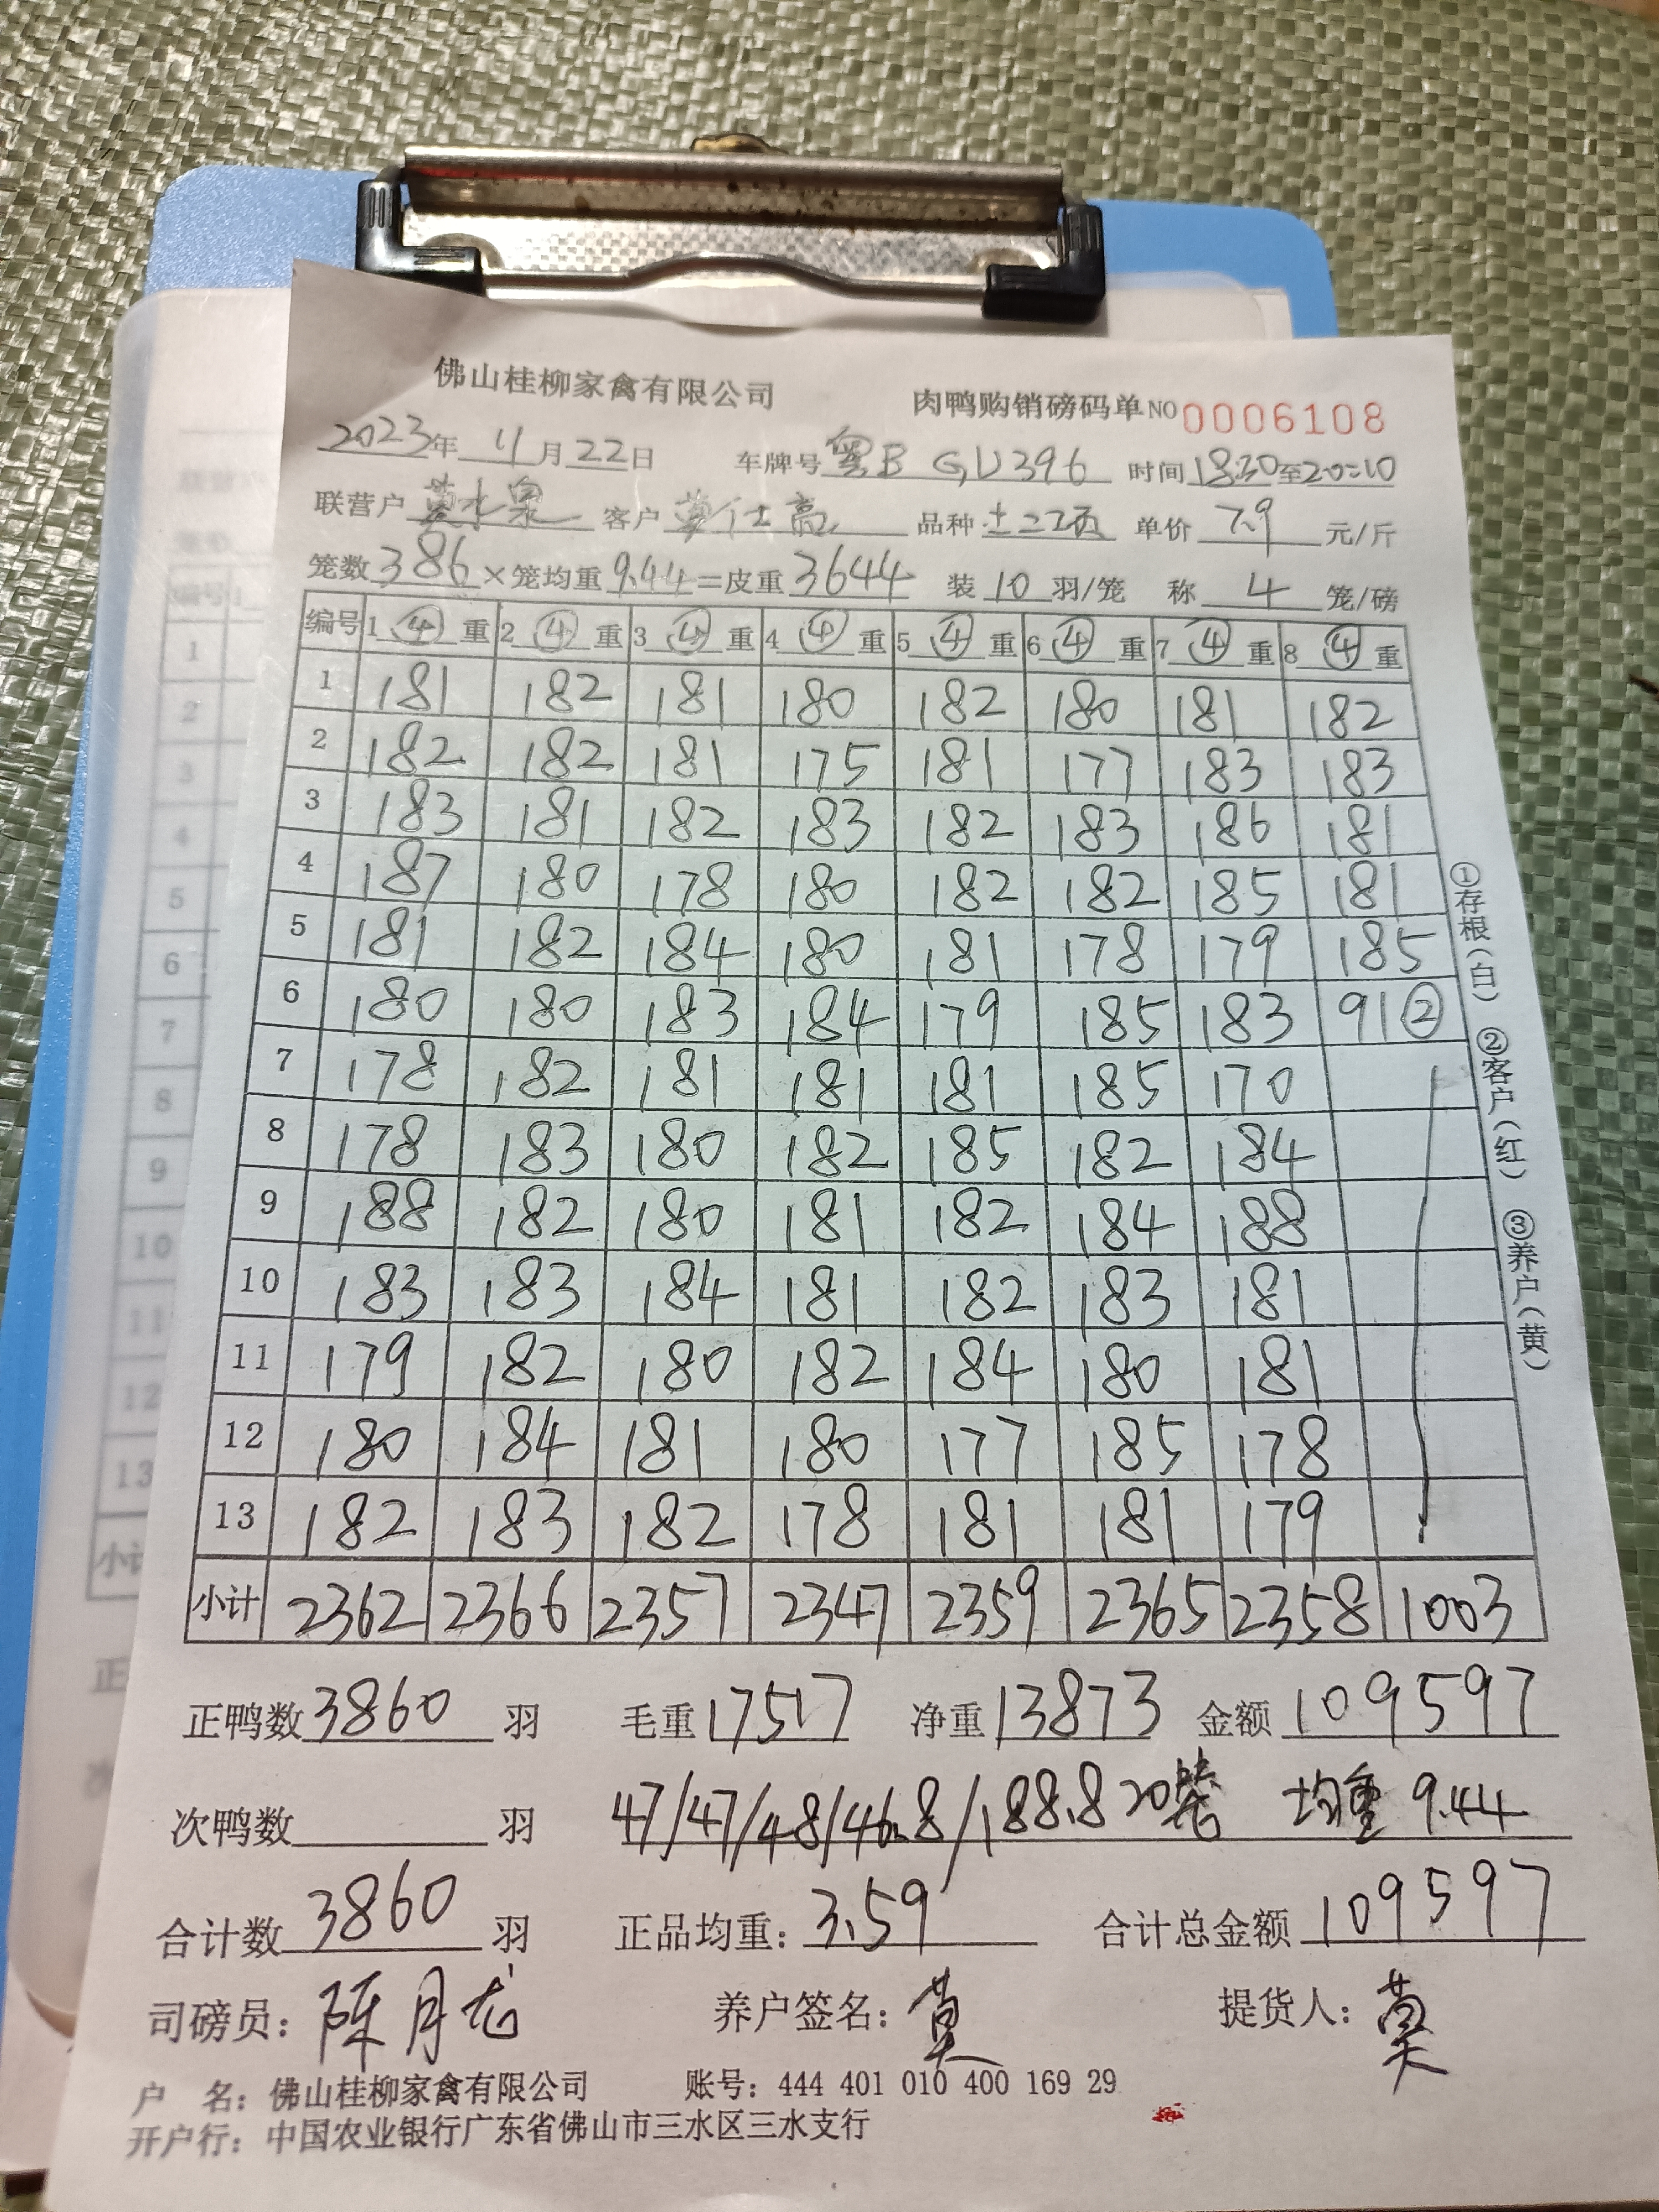 佛山桂柳家禽有限公司 肉鸭购销磅码单 NO 0006108
2023年 11月22日 车牌号 粤B GU396 时间18:30至20:10
联营户 莫水泉 客户 莫仕高 品种 单价 7.9 元/斤
笼数386×笼均重9.44=皮重3644 装10羽/笼 称4笼/磅
编号 1④重 2④重 3④重 4④重 5④重 6④重 7④重 8④重
1 181 182 181 180 182 180 181 182
2 182 182 181 175 181 177 183 183
3 183 181 182 183 182 183 186 181
4 187 180 178 180 182 182 185 181
5 181 182 184 180 181 178 179 185
6 180 180 183 184 179 185 183 91②
7 178 182 181 181 181 185 170
8 178 183 180 182 185 182 184
9 188 182 180 181 182 184 188
10 183 183 184 181 182 183 181
11 179 182 180 182 184 180 181
12 180 184 181 180 177 185 178
13 182 183 182 178 181 181 179
小计 2362 2366 2357 2347 2359 2365 2358 1003
①存根(白) ②客户(红) ③养户(黄)
正鸭数3860羽 毛重17517 净重13873 金额109597
次鸭数 羽 47/47/48/46.8/188.8 20笼 均重 9.44
合计数3860羽 正品均重:3.59 合计总金额109597
司磅员:陈月龙 养户签名:莫 提货人:莫
户 名:佛山桂柳家禽有限公司 账号:444 401 010 400 169 29
开户行:中国农业银行广东省佛山市三水区三水支行